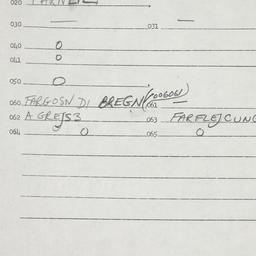 020
030 — 031 —
040 0
041 0
050 0
060 FARGOSN DI BREGN 061 —
062 A GREJS3 063 FARFLEJCUNG
064 0 065 0